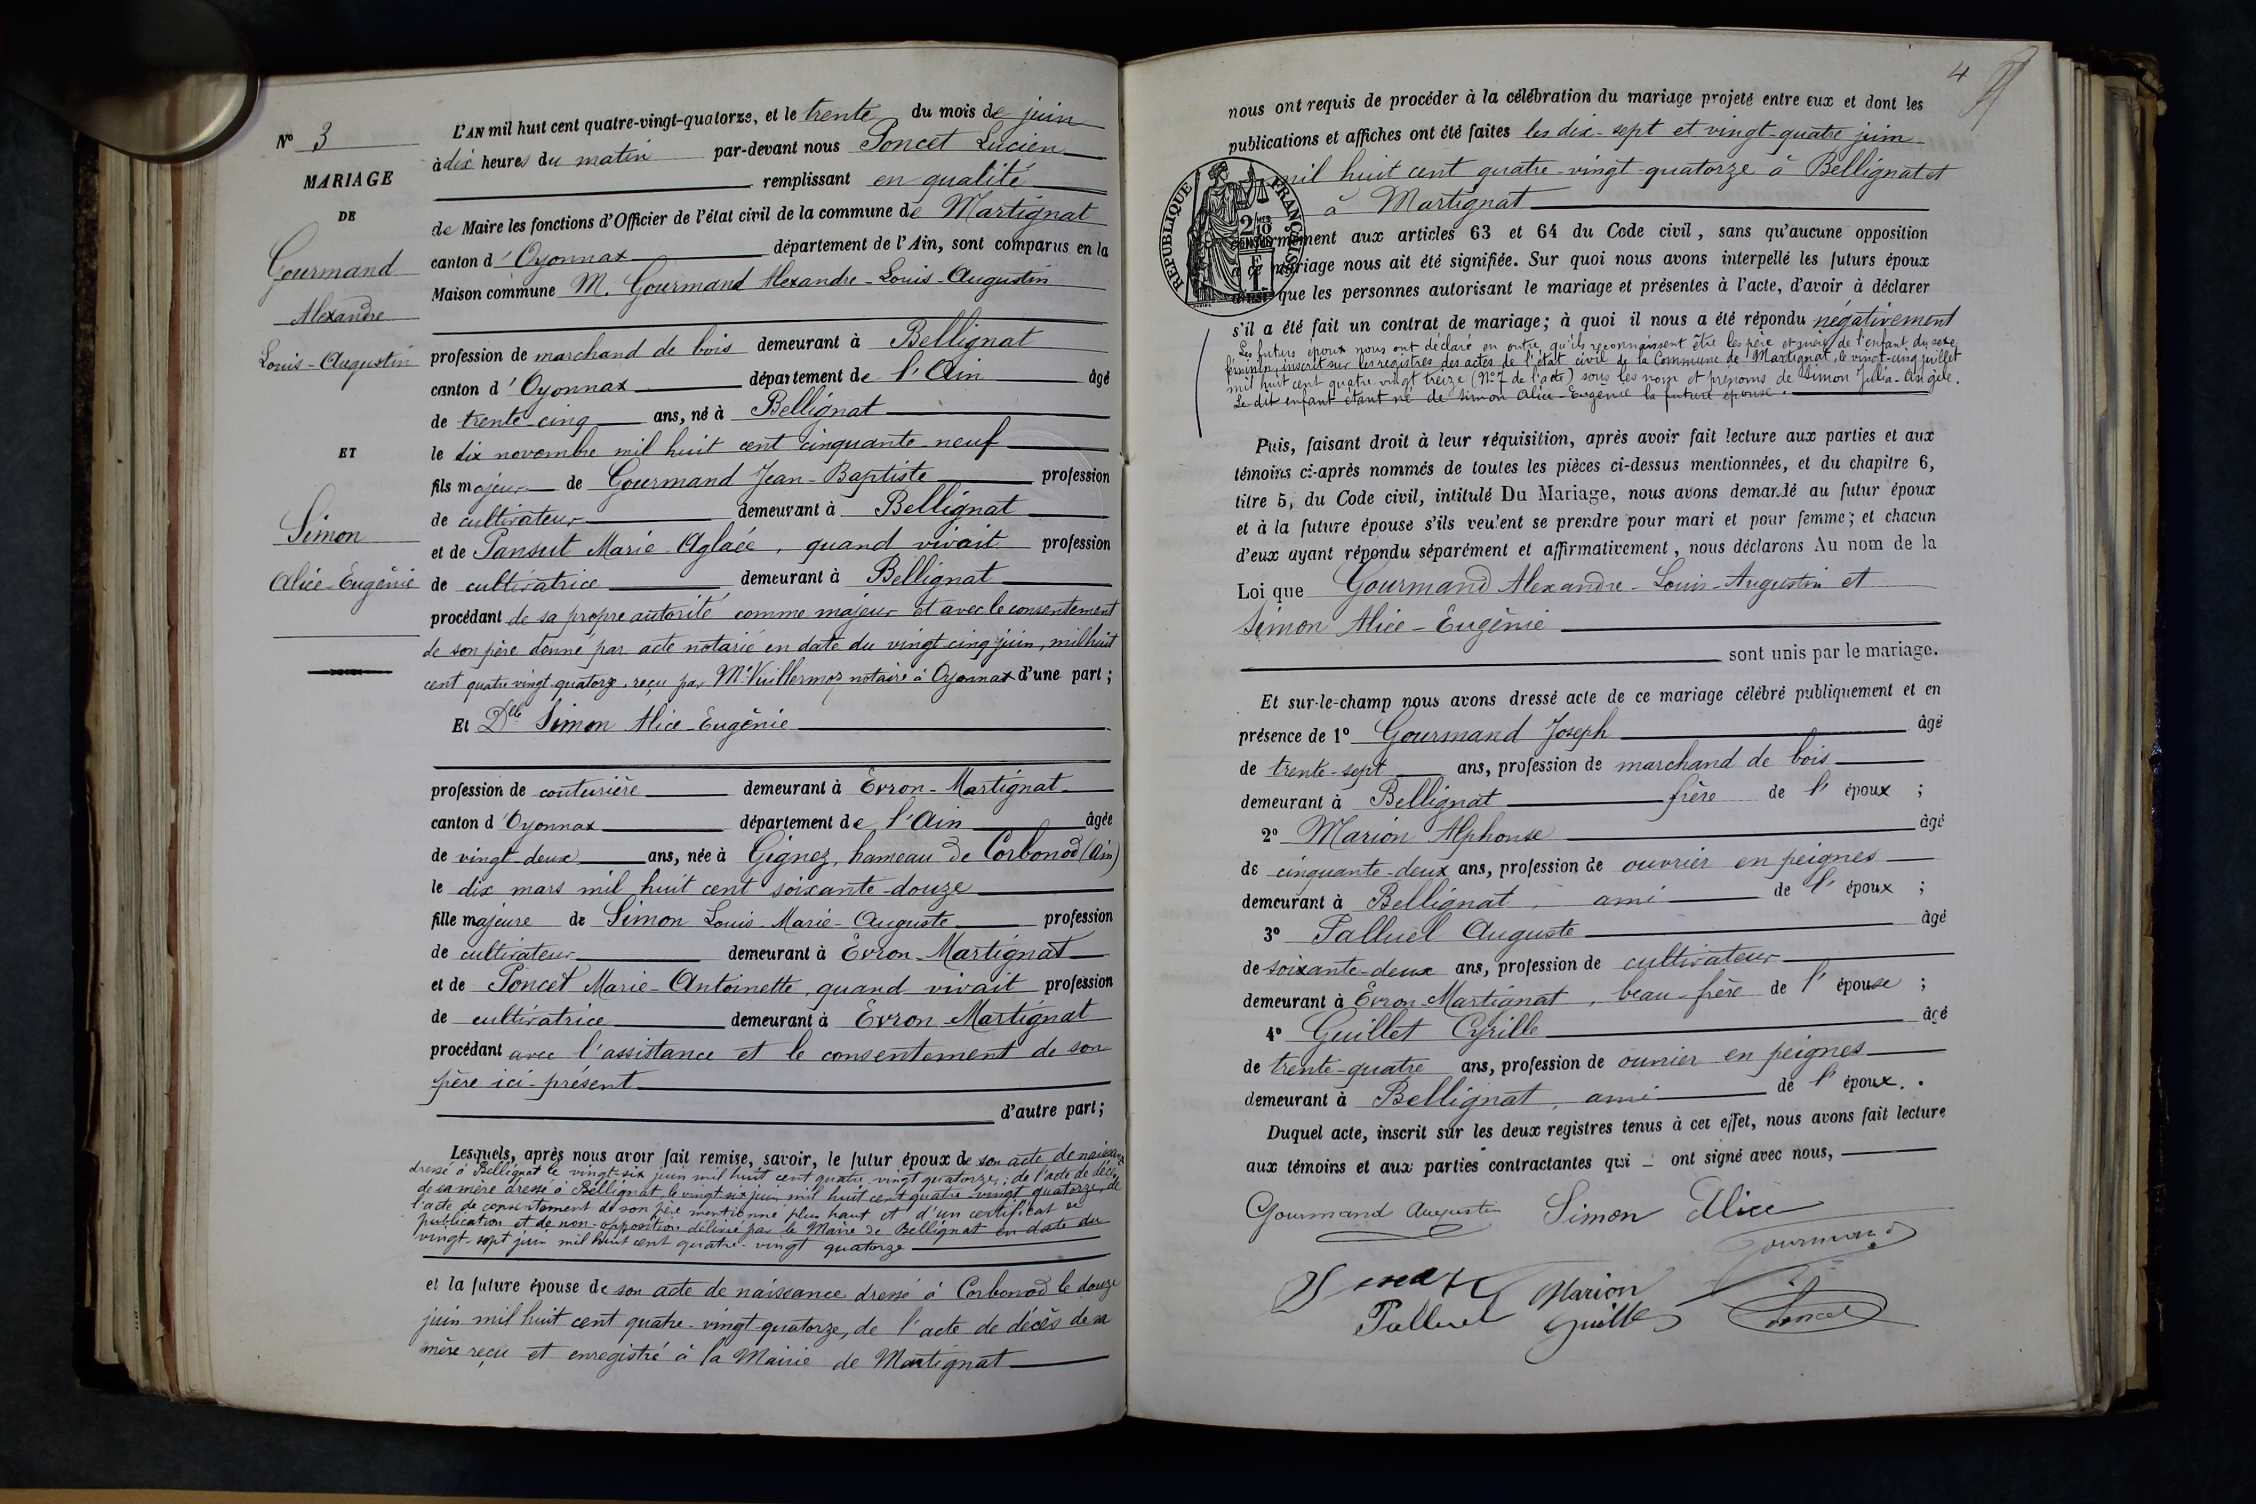 N° 3
MARIAGE
DE
Gourmand
Alexandre
Louis-Augustin
ET
Simon
Alice-Eugénie
L'AN mil huit cent quatre-vingt-quatorze, et le trente du mois de juin
à dix heures du matin par-devant nous Poncet Lucien
remplissant en qualité
de Maire les fonctions d'Officier de l'état civil de la commune de Martignat
canton d'Oyonnax département de l'Ain, sont comparus en la
Maison commune M. Gourmand Alexandre-Louis-Augustin
profession de marchand de bois demeurant à Bellignat
canton d'Oyonnax département de l'Ain âgé
de trente-cinq ans, né à Bellignat
le dix novembre mil huit cent cinquante-neuf
fils majeur de Gourmand Jean-Baptiste profession
de cultivateur demeurant à Bellignat
et de Pansut Marie-Aglaée, quand vivait profession
de cultivatrice demeurant à Bellignat
procédant de sa propre autorité comme majeur et avec le consentement
de son père donné par acte notarié en date du vingt-cinq juin, mil huit
cent quatre vingt-quatorze, reçu par Me Vuillermoz notaire à Oyonnax d'une part;
Et Dlle Simon Alice-Eugénie
profession de couturière demeurant à Evron-Martignat
canton d'Oyonnax département de l'Ain âgée
de vingt-deux ans, née à Gignez, hameau de Corbonod (Ain)
le dix mars mil huit cent soixante-douze
fille majeure de Simon Louis-Marie-Auguste profession
de cultivateur demeurant à Evron-Martignat
et de Poncet Marie-Antoinette, quand vivait profession
de cultivatrice demeurant à Evron-Martignat
procédant avec l'assistance et le consentement de son
père ici-présent
d'autre part;
Lesquels, après nous avoir fait remise, savoir, le futur époux de son acte de naissance
dressé à Bellignat le vingt-six juin mil huit cent quatre-vingt quatorze; de l'acte de décès
de sa mère dressé à Bellignat le vingt six juin mil huit cent quatre-vingt quatorze, de
l'acte de consentement de son père mentionné plus haut et d'un certificat de
publication et de non-opposition délivré par le Maire de Bellignat en date du
vingt-sept juin mil huit cent quatre-vingt quatorze
et la future épouse de son acte de naissance dressé à Corbonod le douze
juin mil huit cent quatre-vingt-quatorze, de l'acte de décès de sa
mère reçu et enregistré à la Mairie de Martignat
4
nous ont requis de procéder à la célébration du mariage projeté entre eux et dont les
publications et affiches ont été faites les dix-sept et vingt-quatre juin
mil huit cent quatre-vingt-quatorze à Bellignat et
à Martignat
RÉPUBLIQUE FRANÇAISE
2/10
conformément aux articles 63 et 64 du Code civil, sans qu'aucune opposition
à ce mariage nous ait été signifiée. Sur quoi nous avons interpellé les futurs époux
ainsi que les personnes autorisant le mariage et présentes à l'acte, d'avoir à déclarer
s'il a été fait un contrat de mariage; à quoi il nous a été répondu négativement
Les futurs époux nous ont déclaré en outre qu'ils reconnaissent être les père et mère de l'enfant du sexe
féminin, inscrit sur les registres des actes de l'état civil de la Commune de Martignat, le vingt-cinq juillet
mil huit cent quatre vingt treize (No 7 de l'acte) sous les nom et prénoms de Simon Julia-Angèle.
Le dit enfant étant né de Simon Alice-Eugénie la future épouse.
Puis, faisant droit à leur réquisition, après avoir fait lecture aux parties et aux
témoins ci-après nommés de toutes les pièces ci-dessus mentionnées, et du chapitre 6,
titre 5, du Code civil, intitulé Du Mariage, nous avons demandé au futur époux
et à la future épouse s'ils veulent se prendre pour mari et pour femme; et chacun
d'eux ayant répondu séparément et affirmativement, nous déclarons Au nom de la
Loi que Gourmand Alexandre-Louis-Augustin et
Simon Alice-Eugénie
sont unis par le mariage.
Et sur-le-champ nous avons dressé acte de ce mariage célébré publiquement et en
présence de 1° Gourmand Joseph âgé
de trente-sept ans, profession de marchand de bois
demeurant à Bellignat frère de l'époux;
2° Marion Alphonse âgé
de cinquante-deux ans, profession de ouvrier en peignes
demeurant à Bellignat, ami de l'époux;
3° Palluel Auguste âgé
de soixante-deux ans, profession de cultivateur
demeurant à Evron-Martignat, beau-frère de l'épouse;
4° Guillet Cyrille âgé
de trente-quatre ans, profession de ouvrier en peignes
demeurant à Bellignat, ami de l'époux.
Duquel acte, inscrit sur les deux registres tenus à cet effet, nous avons fait lecture
aux témoins et aux parties contractantes qui ont signé avec nous,
Gourmand Augustin Simon Alice
Gourmand
Marion
Palluel Guillet Poncet